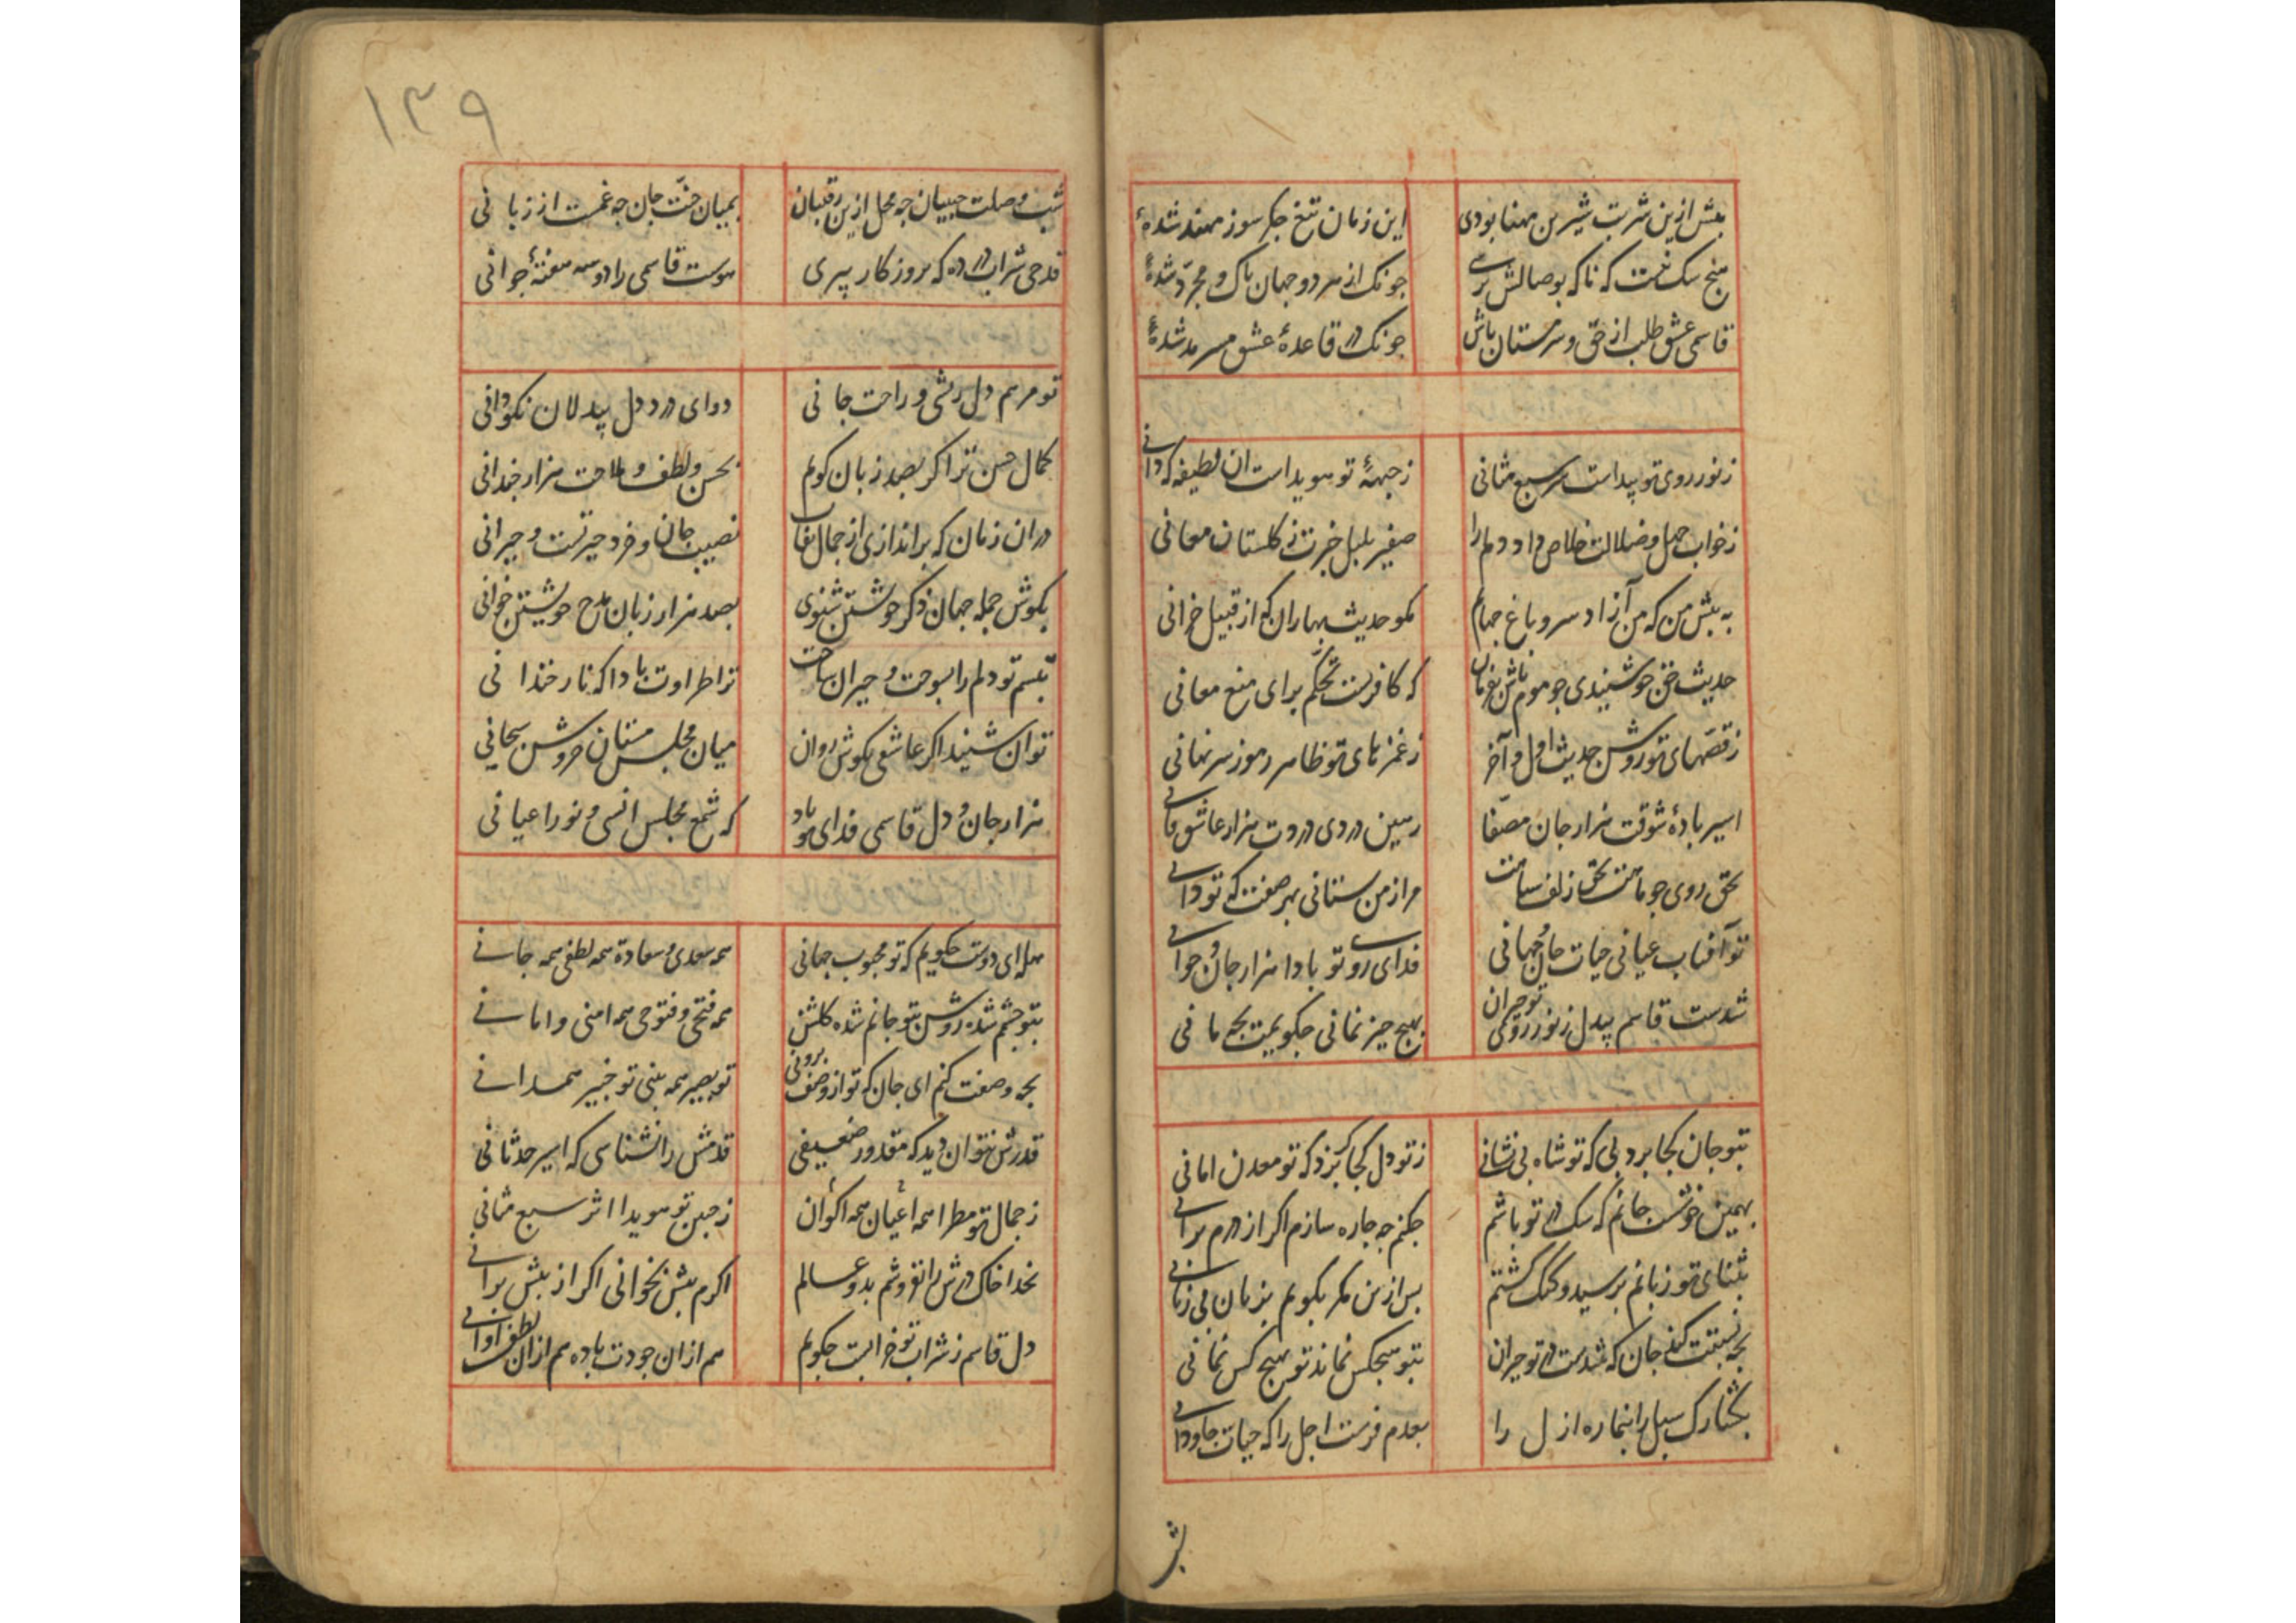 بیش ازین شربت شیرین مهنا بودی این زمان تیغ جکر سوز مهند شدهٔ
هیچ شک نیست که ناکه بوصالش برسی جونک از هر دو جهان پاک و مجرّد شدهٔ
قاسمی عشق طلب از حق و سرمستان باش جونک در قاعدهٔ عشق مسرمد شدهٔ
ز نور روی تو پیداست سرّ سبع مثانی ز جبههٔ تو هویداست ان لطیفه که دانی
ز خواب جهل و ضلالت خلاص داد دلم را صفیر بلبل خبرت ز کلستان معانی
به پیش من که من آزاد سرو باغ جهانم مکو حدیث بهاران که از قبیل خزانی
حدیث حق جو شنیدی جو موم باش بفرمان که کافریست تحکّم برای منع معانی
ز قصّهای تو روشن حدیث اول و آخر ز غمزهای تو ظاهر رموز سر نهانی
اسیر بادهٔ شوقت هزار جان مصفّا رهین دردی دردت هزار عاشق فانی
بحق روی جو ماهت بحق زلف سیاهت مرا ز من بستانی بهر صفت که تو دانی
تو آفتاب عیانی حیات جان و جهانی فدای روی تو بادا هزار جان و جوانی
شدست قاسم بیدل ز نور روی تو حیران بهیج جیز نمانی جکویمت بجه مانی
بتو جان کجا برد پی که تو شاه بی نشانی ز تو دل کجا کریزد که تو معدن امانی
بهمین خوشست جانم که سک در تو باشم جکنم جه جاره سازم اکر از درم برانی
بثنای تو زبانم برسید و کنک کشتم بس ازین مکر بکویم بزبان بی زبانی
بجه نسبتت کند جان که شدست در تو حیران بتو هیجکس نماند تو بهیج کس نمانی
بخنارک سبل را بنما ره ازل را بعدم فرست اجل را که حیات جاودانی
شب
۱۳۹
شب وصلت حبیبان جه محل ازین رقیبان بمیان حق جان جه غمست از زبانی
قدحی شراب در ده که بروزکار پیری هوست قاسمی را دو سه مغنهٔ جوانی
تو مرهم دل ریشی و راحت جانی دوای درد دل بیدلان نکو دانی
کمال حسن ترا کر بصد زبان کویم بحسن و لطف و ملاحت هزار جندانی
دران زمان که براندازی از جمال نقاب نصیب جان و خرد حیرتست و حیرانی
بکوش جمله جهان ذکر خویشتن شنوی بصد هزار زبان مدح خویشتن خوانی
تبسم تو دلم را بسوخت و حیران ساخت ترا طراوت بادا که نار خندانی
توان شنید اکر عاشقی بکوش روان میان مجلس مستان خروش سبحانی
هزار جان و دل قاسمی فدای تو باد که شمع مجلس انسی و نور اعیانی
هله ای دوست جکویم که تو محبوب جهانی همه سعدی و سعادة همه لطفی همه جانی
بتو جشمم شده روشن بتو جانم شده کلشن همه فتحی و فتوحی همه امنی و امانی
بجه وصفت کنم ای جان که تو از وصف برونی تو بصیر همه بینی تو خبیر همه دانی
قدرش نتوان دید که مقدور ضعیفی قدمش را نشناسی که اسیر حدثانی
ز جمال تو مطرا همه اعیان همه اکوان ز جبین تو هویدا اثر سبع مثانی
بخدا خاک درش را نفروشم بدو عالم اکرم پیش بخوانی اکر از پیش برانی
دل قاسم ز شراب تو خرابست جکویم هم ازان جودت باده هم ازان لطف اوانی